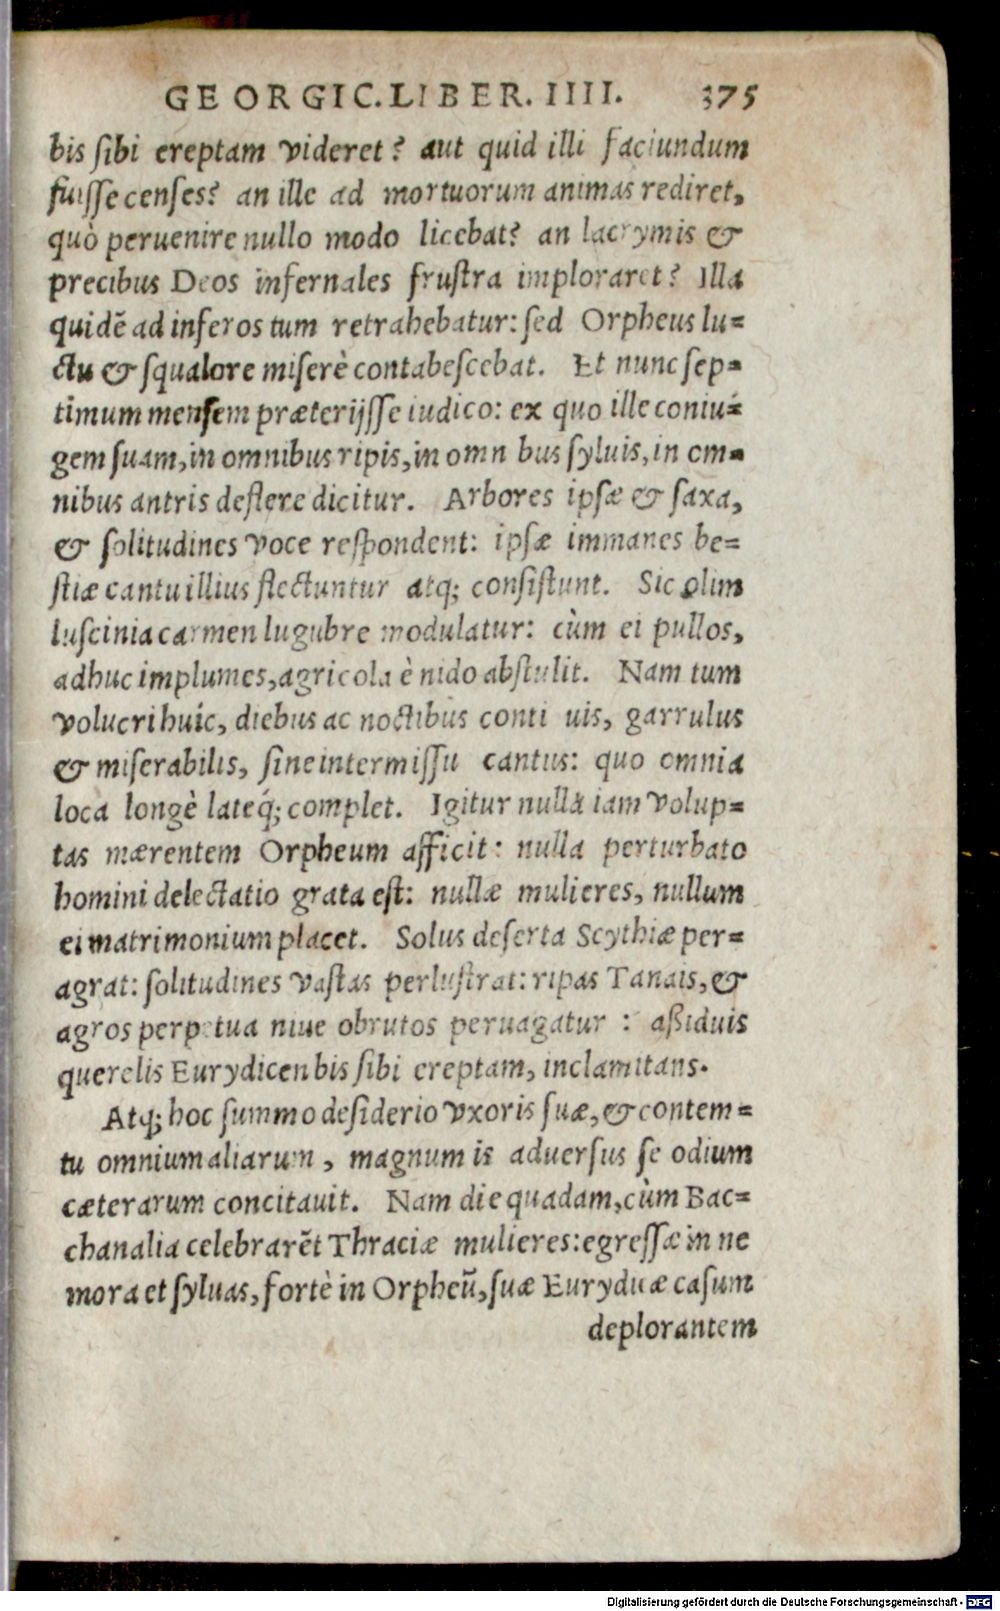 GEORGIC. LIBER. IIII. 375
bis sibi ereptam videret? aut quid illi faciundum
fuisse censes? an ille ad mortuorum animas rediret,
quò peruenire nullo modo licebat? an lacrymis &
precibus Deos infernales frustra imploraret? Illa
quidẽ ad inferos tum retrahebatur: sed Orpheus lu-
ctu & squalore miserè contabescebat. Et nunc sep-
timum mensem præterijsse iudico: ex quo ille coniu-
gem suam, in omnibus ripis, in omn bus syluis, in om-
nibus antris deflere dicitur. Arbores ipsæ & saxa,
& solitudines voce respondent: ipsæ immanes be-
stiæ cantu illius flectuntur atq; consistunt. Sic olim
luscinia carmen lugubre modulatur: cùm ei pullos,
adhuc implumes, agricola è nido abstulit. Nam tum
volucri huic, diebus ac noctibus conti uis, garrulus
& miserabilis, sine intermissu cantus: quo omnia
loca longè lateq́; complet. Igitur nulla iam volup-
tas mærentem Orpheum afficit: nulla perturbato
homini delectatio grata est: nullæ mulieres, nullum
ei matrimonium placet. Solus deserta Scythiæ per-
agrat: solitudines vastas perlustrat: ripas Tanais, &
agros perpetua niue obrutos peruagatur: aßiduis
querelis Eurydicen bis sibi ereptam, inclamitans.
Atq; hoc summo desiderio vxoris suæ, & contem-
tu omnium aliarum, magnum is aduersus se odium
cæterarum concitauit. Nam die quadam, cùm Bac-
chanalia celebrarẽt Thraciæ mulieres: egressæ in ne
mora et syluas, fortè in Orpheũ, suæ Eurydicæ casum
deplorantem
Digitalisierung gefördert durch die Deutsche Forschungsgemeinschaft - DFG